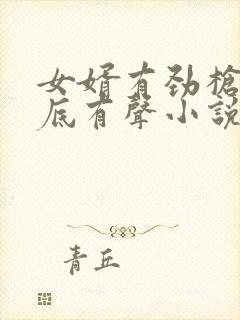 女婿有劲槍
底有聲小説
青丘